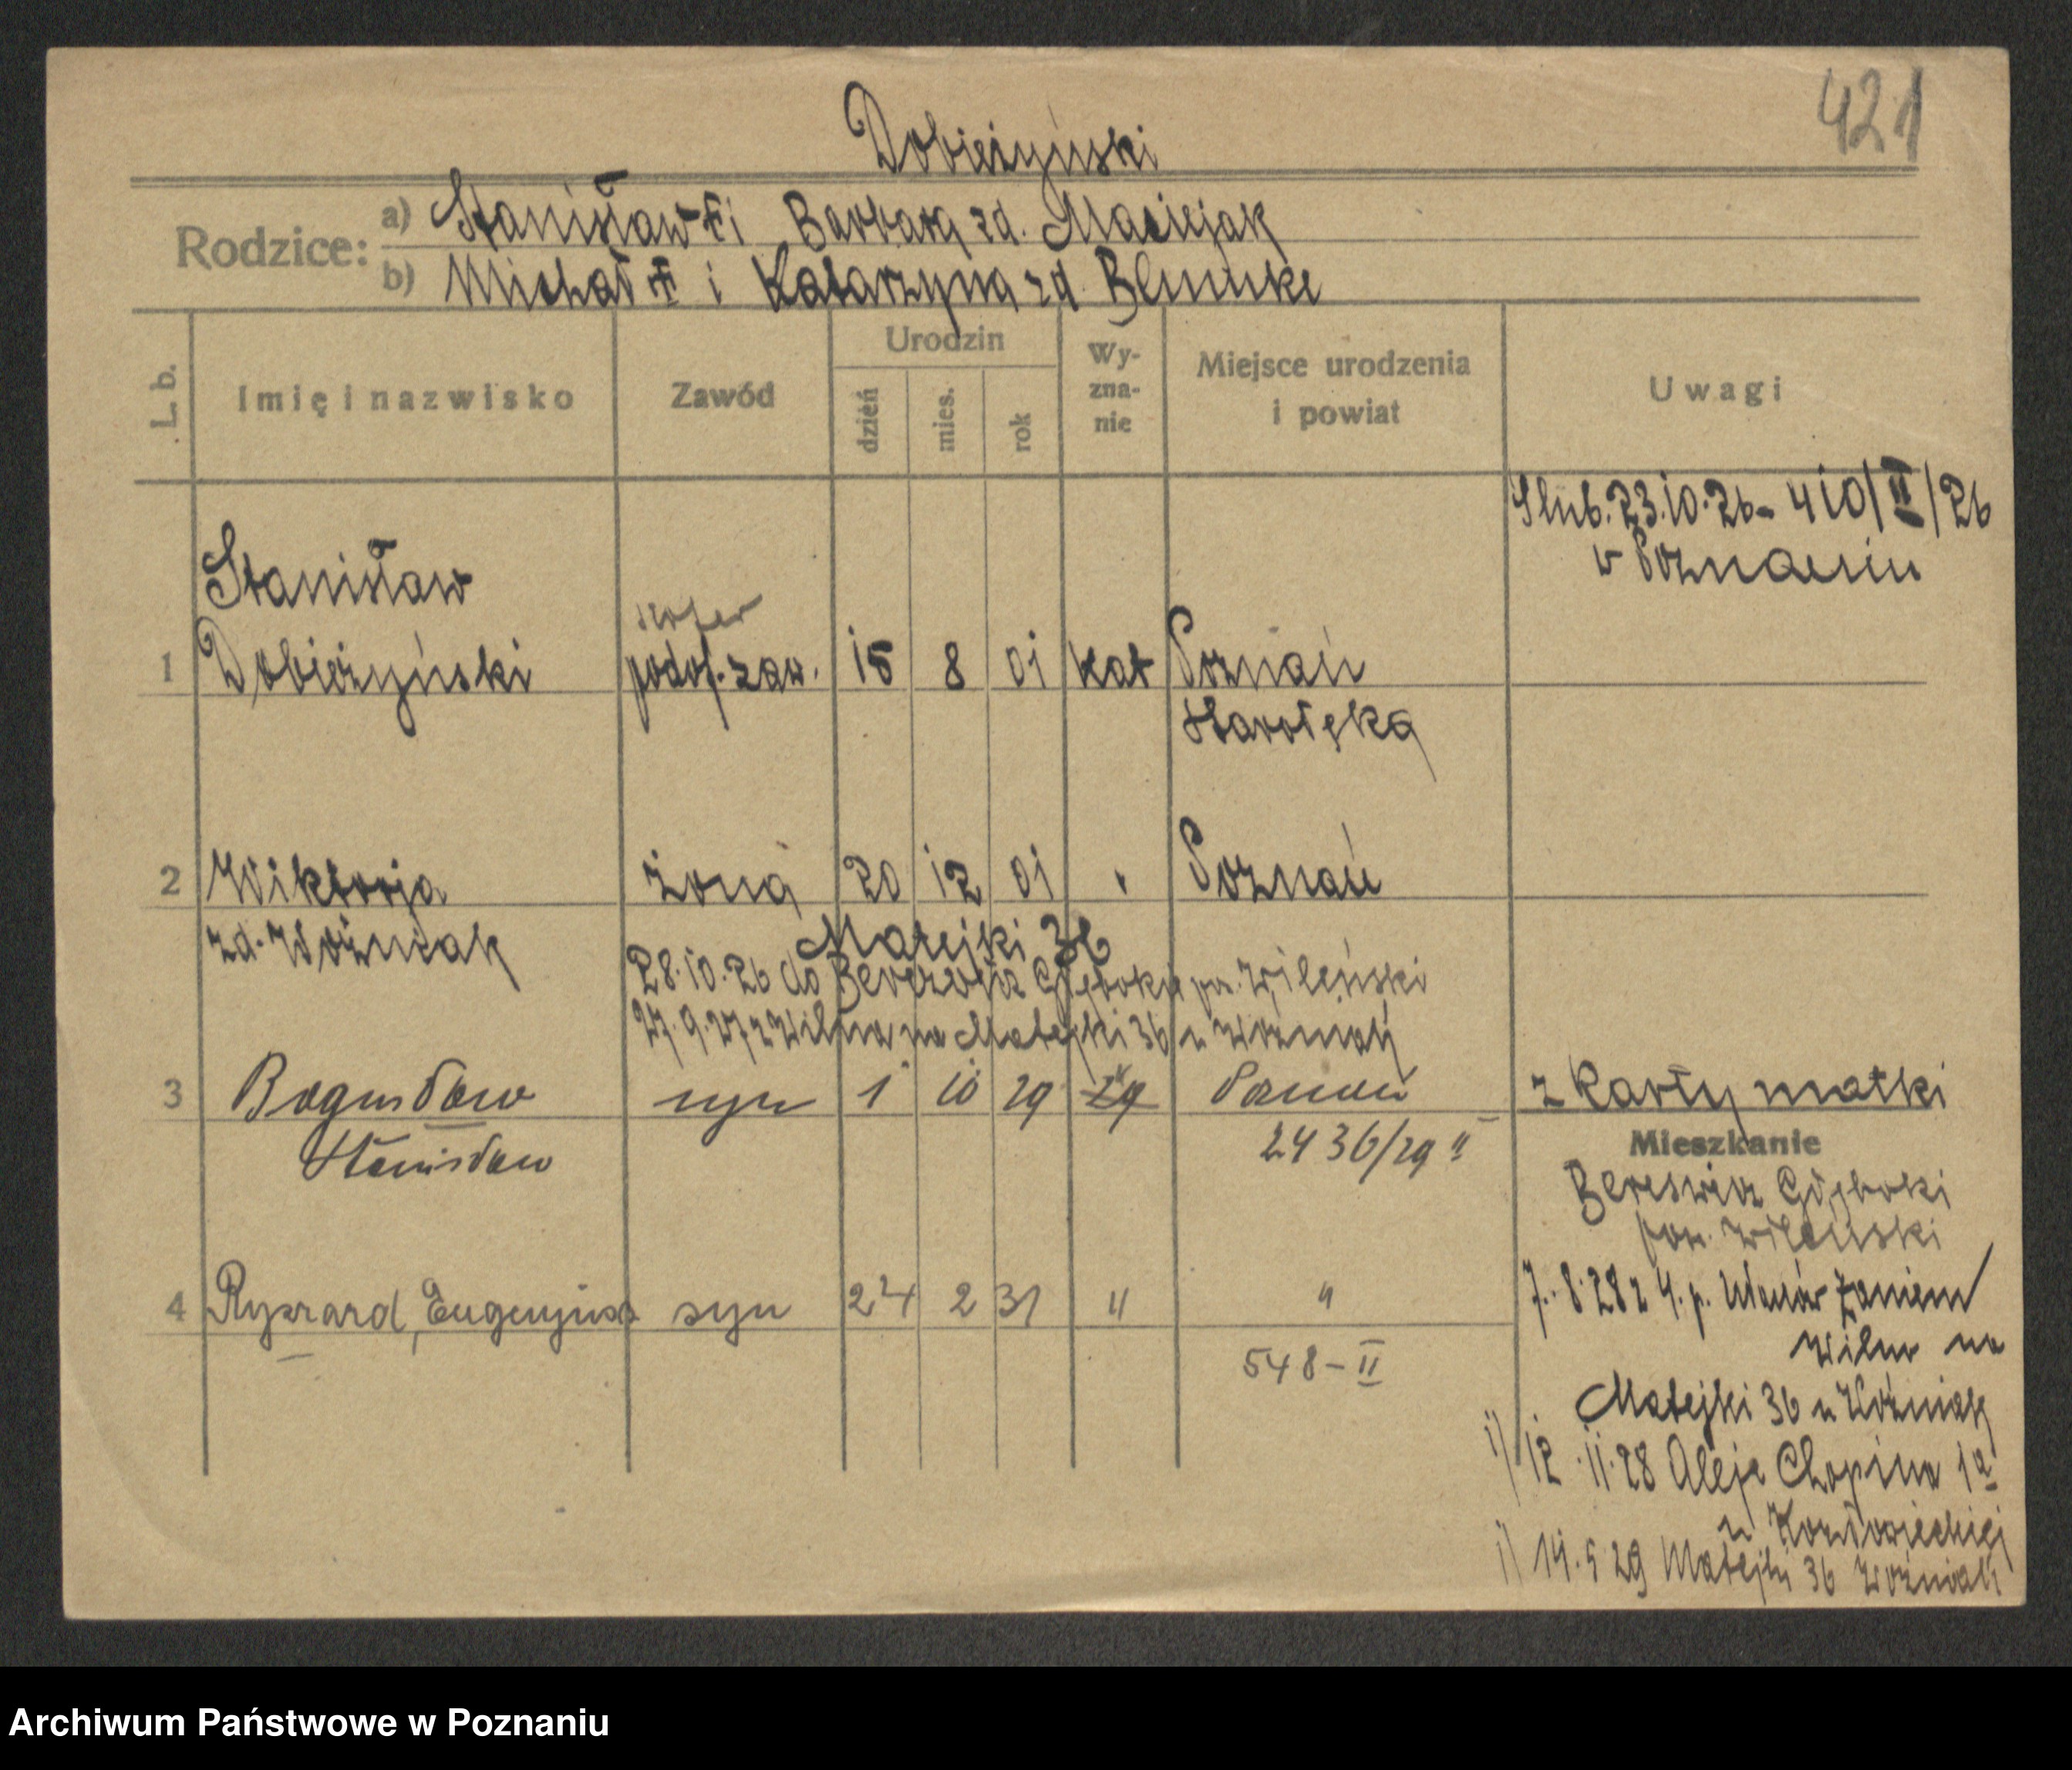 421
Dobieżyński
Rodzice:
a) Stanisław + i Barbara zd. Maciejak
b) Michał + i Katarzyna zd. Blumke
L. b.
Imię i nazwisko
Zawód
Urodzin
dzień
mies.
rok
Wy-
zna-
nie
Miejsce urodzenia
i powiat
Uwagi
Ślub. 23.10.26 - 410/II/26
w Poznaniu
Stanisław
szofer
1 Dobieżyński podof. zaw. 15 8 01 kat Poznań
Starołęka
2 Wiktorja żona 20 12 01 " Poznań
zd. Woźniak
Matejki 36
28.10.26 do Głębokie pow. Wileński
27.9.27 z Wilna na Matejki 36 u Woźniak
3 Bogusław syn 1 10 29 29 " Poznań z karty matki
Stanisław 2436/29 II
Mieszkanie
Głęboki
pow. Wileński
4 Ryszard, Eugenjusz syn 24 2 31 " "
548-II
7.8.28 z 4. p. Ułanów Zaniem
Wilna na
Matejki 36 u Woźniak
1) 12.11.28 Aleje Chopina 1a
u
1) 14.5.29 Matejki 36 Woźniak
Archiwum Państwowe w Poznaniu